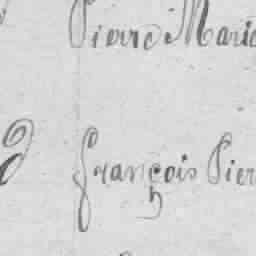 Pierre Marie
d François Pier